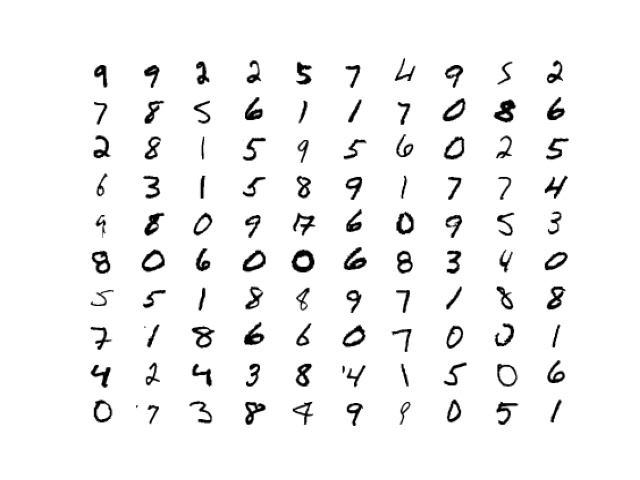 9 9 2 2 5 7 4 9 5 2
7 8 5 6 1 1 7 0 8 6
2 8 1 5 9 5 6 0 2 5
6 3 1 5 8 9 1 7 7 4
9 8 0 9 17 6 0 9 5 3
8 0 6 0 0 6 8 3 4 0
5 5 1 8 8 9 7 1 8 8
7 1 8 6 6 0 7 0 0 1
4 2 4 3 8 4 1 5 0 6
0 7 3 8 4 9 9 0 5 1